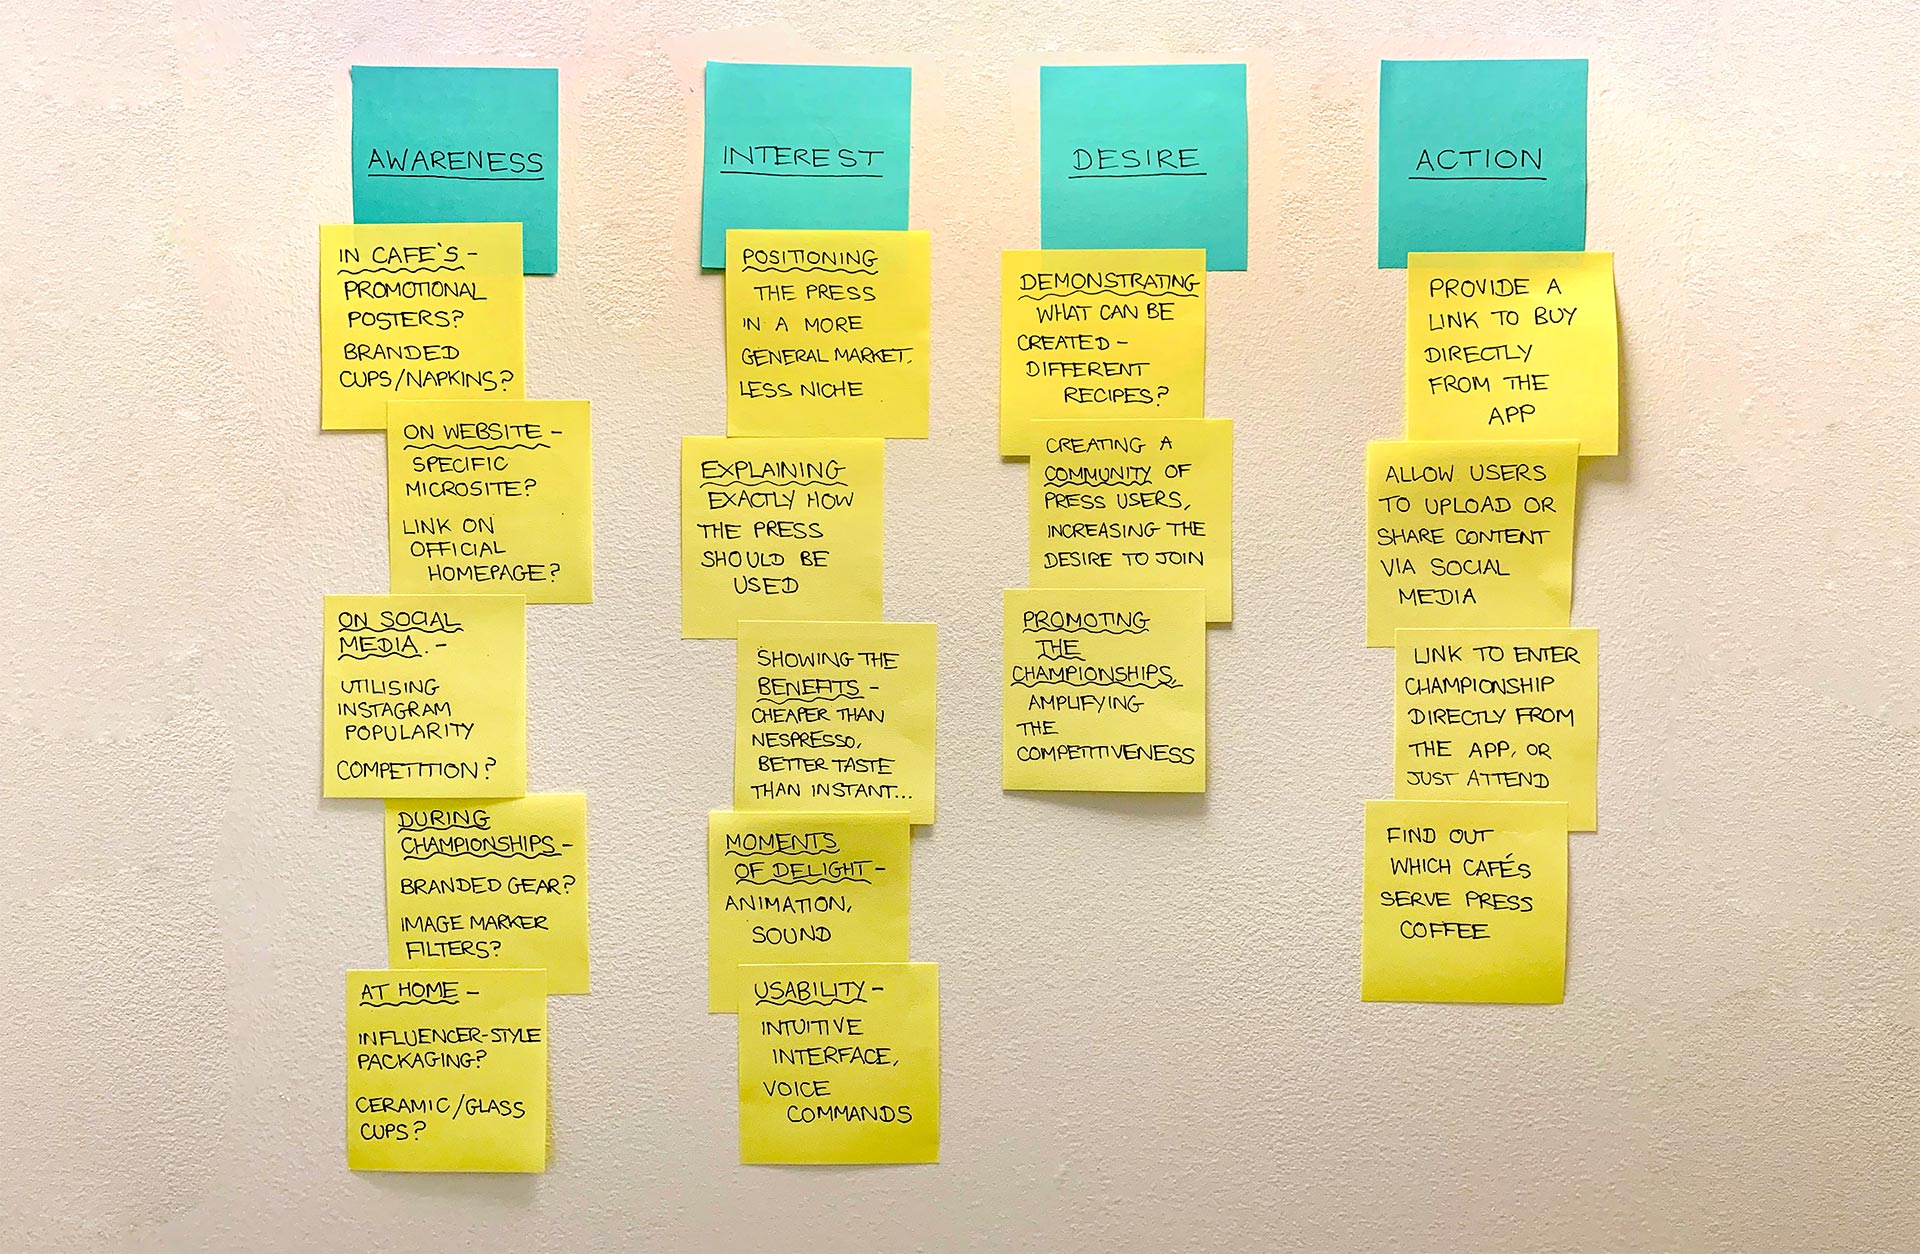 AWARENESS
IN CAFE'S -
PROMOTIONAL
POSTERS?
BRANDED
CUPS/NAPKINS?
ON WEBSITE -
SPECIFIC
MICROSITE?
LINK ON
OFFICIAL
HOMEPAGE?
ON SOCIAL
MEDIA. -
UTILISING
INSTAGRAM
POPULARITY
COMPETITION?
DURING
CHAMPIONSHIPS -
BRANDED GEAR?
IMAGE MARKER
FILTERS?
AT HOME -
INFLUENCER-STYLE
PACKAGING?
CERAMIC/GLASS
CUPS?
INTEREST
POSITIONING
THE PRESS
IN A MORE
GENERAL MARKET.
LESS NICHE
EXPLAINING
EXACTLY HOW
THE PRESS
SHOULD BE
USED
SHOWING THE
BENEFITS -
CHEAPER THAN
NESPRESSO,
BETTER TASTE
THAN INSTANT...
MOMENTS
OF DELIGHT -
ANIMATION,
SOUND
USABILITY -
INTUITIVE
INTERFACE,
VOICE
COMMANDS
DESIRE
DEMONSTRATING
WHAT CAN BE
CREATED -
DIFFERENT
RECIPES?
CREATING A
COMMUNITY OF
PRESS USERS,
INCREASING THE
DESIRE TO JOIN
PROMOTING
THE
CHAMPIONSHIPS,
AMPLIFYING
THE
COMPETITIVENESS
ACTION
PROVIDE A
LINK TO BUY
DIRECTLY
FROM THE
APP
ALLOW USERS
TO UPLOAD OR
SHARE CONTENT
VIA SOCIAL
MEDIA
LINK TO ENTER
CHAMPIONSHIP
DIRECTLY FROM
THE APP, OR
JUST ATTEND
FIND OUT
WHICH CAFÉS
SERVE PRESS
COFFEE